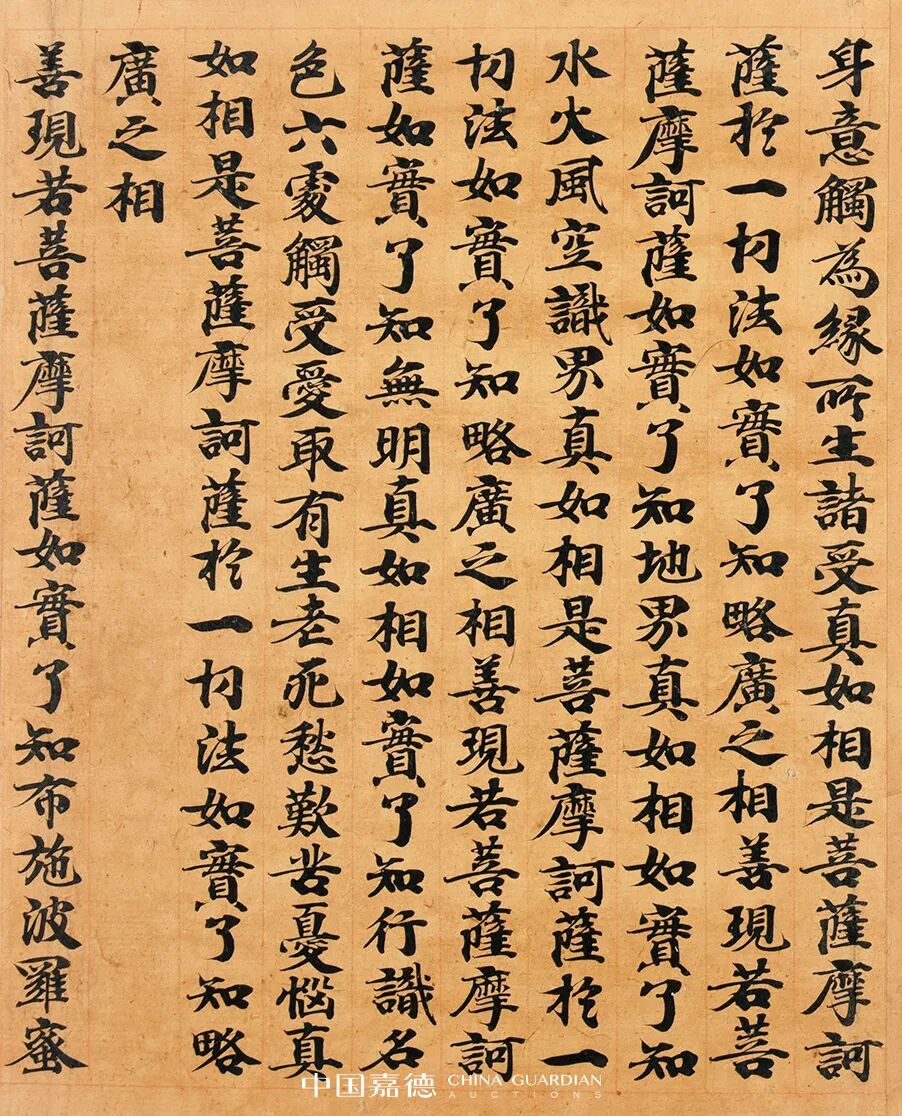 身意觸為緣所生諸受真如相是菩薩摩訶
薩於一切法如實了知略廣之相善現若菩
薩摩訶薩如實了知地界真如相如實了知
水火風空識界真如相是菩薩摩訶薩於一
切法如實了知略廣之相善現若菩薩摩訶
薩如實了知無明真如相如實了知行識名
色六處觸受愛取有生老死愁歎苦憂惱真
如相是菩薩摩訶薩於一切法如實了知略
廣之相
善現若菩薩摩訶薩如實了知布施波羅蜜
中国嘉德 CHINA GUARDIAN
AUCTIONS